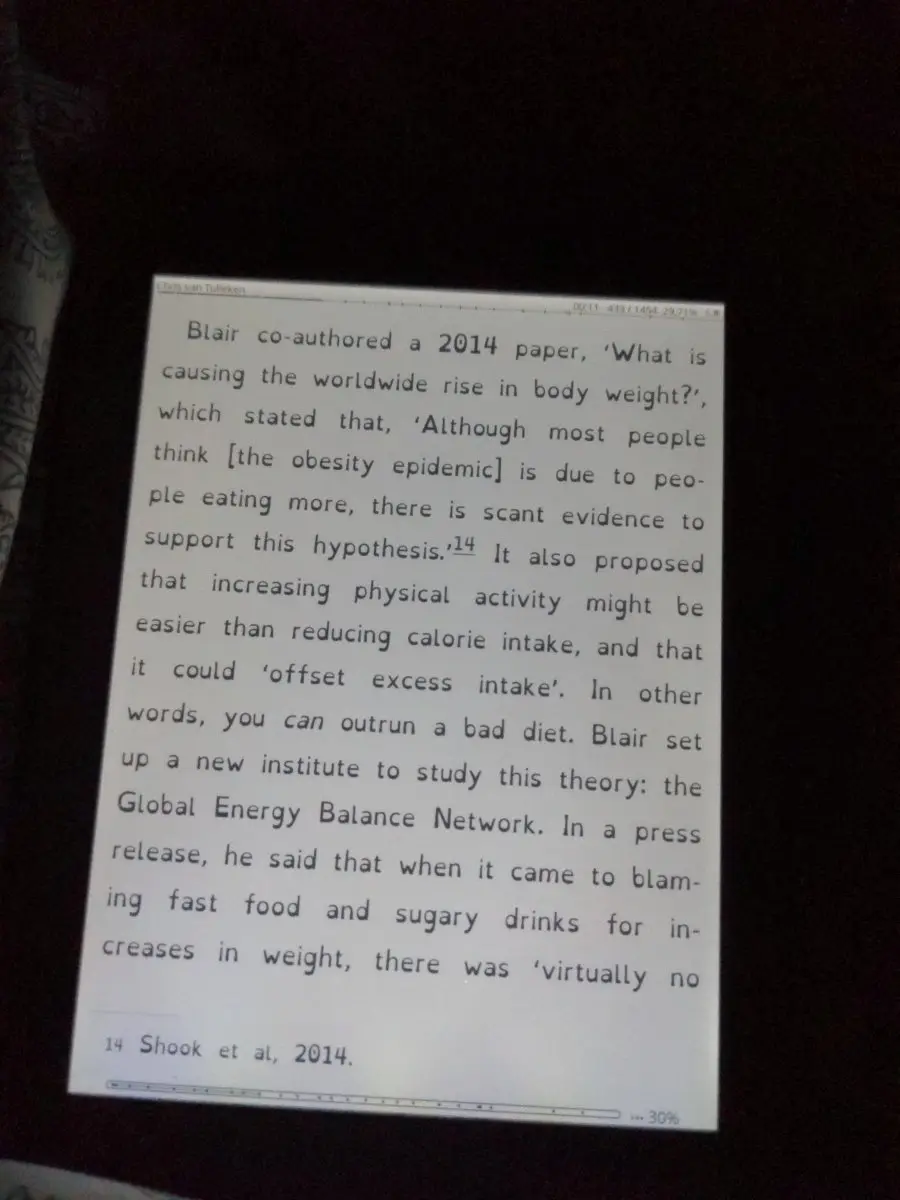 Chris van Tulleken
Blair co-authored a 2014 paper, ‘What is
causing the worldwide rise in body weight?’,
which stated that, ‘Although most people
think [the obesity epidemic] is due to peo-
ple eating more, there is scant evidence to
support this hypothesis.’14 It also proposed
that increasing physical activity might be
easier than reducing calorie intake, and that
it could ‘offset excess intake’. In other
words, you can outrun a bad diet. Blair set
up a new institute to study this theory: the
Global Energy Balance Network. In a press
release, he said that when it came to blam-
ing fast food and sugary drinks for in-
creases in weight, there was ‘virtually no
14 Shook et al, 2014.
30%